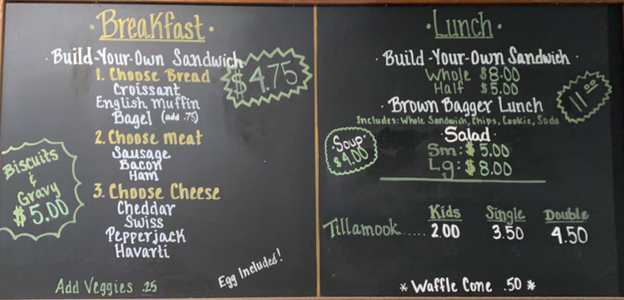 ·Breakfast·
·Build-Your-Own Sandwich
$4.75
1. Choose Bread
Croissant
English Muffin
Bagel (add .75)
2. Choose Meat
Sausage
Bacon
Ham
3. Choose Cheese
Cheddar
Swiss
Pepperjack
Havarti
Biscuits
&
Gravy
$5.00
Add Veggies .25
Egg Included!
·Lunch·
·Build-Your-Own Sandwich·
Whole $8.00
Half $5.00
·Brown Bagger Lunch
11.00
Includes: Whole Sandwich, Chips, Cookie, Soda
Soup
$4.00
Salad
Sm: $5.00
Lg: $8.00
Kids Single Double
Tillamook..... 2.00 3.50 4.50
* Waffle Cone .50 *